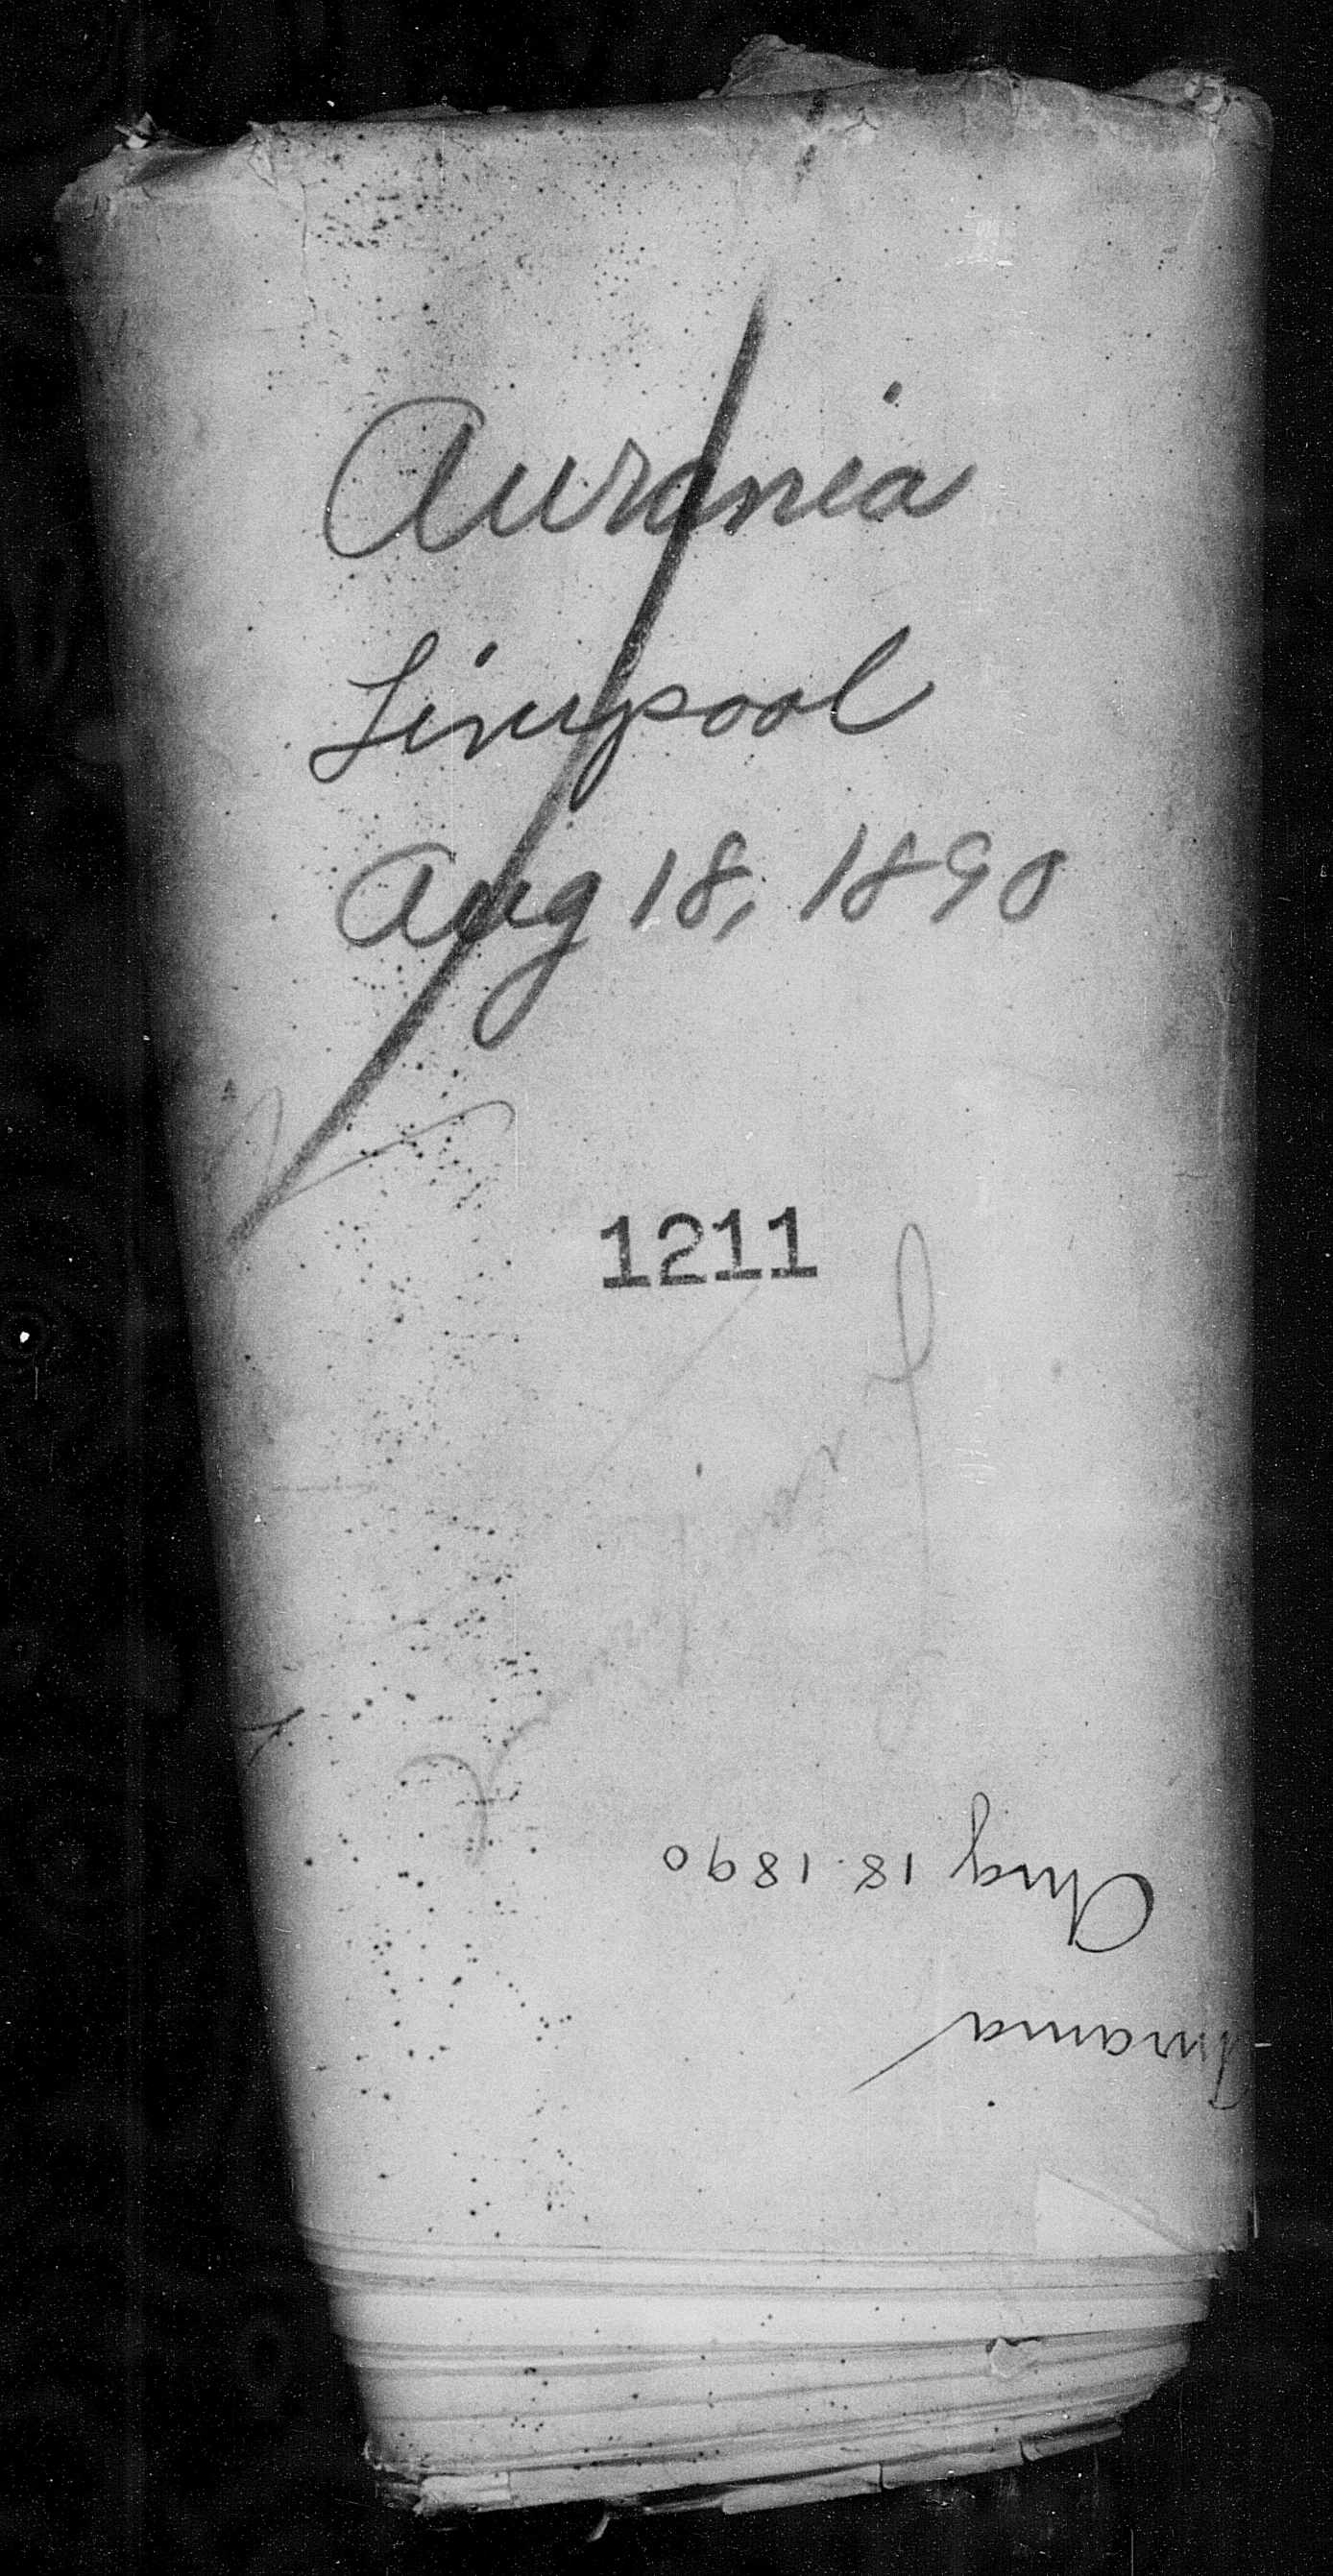 Aurania
Liverpool
Aug 18, 1890
1211
Aug 18. 1890
Aurania